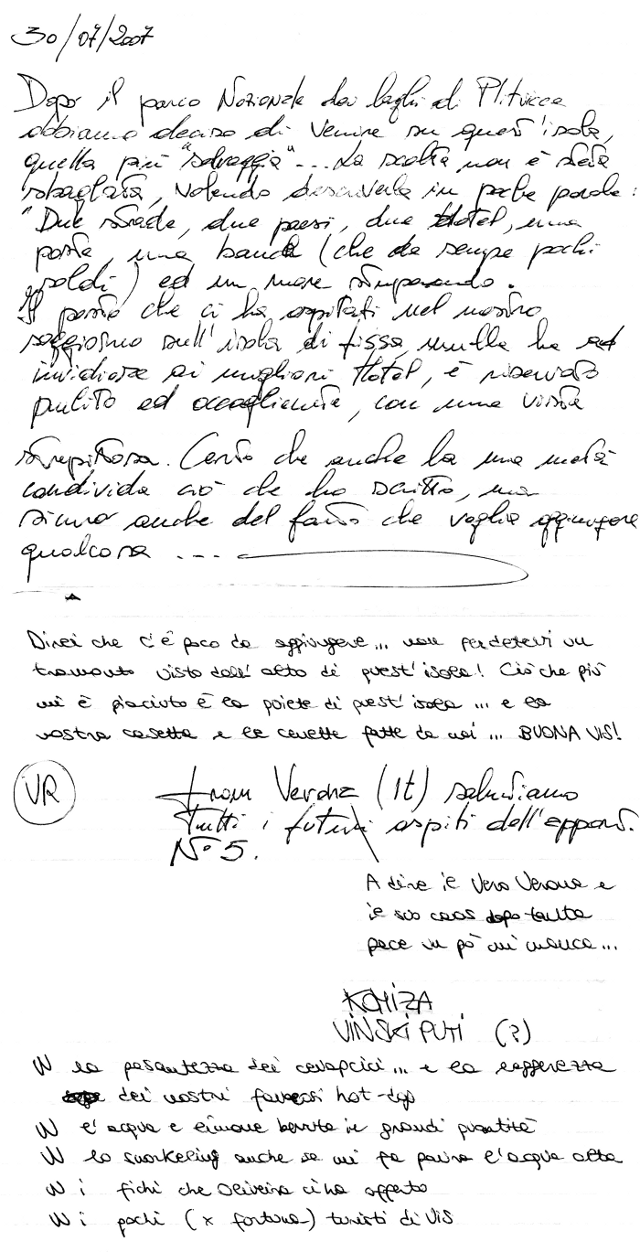 30/07/2007
Dopo il parco Nazionale dei laghi di Plitvicce
abbiamo deciso di venire su quest'isola,
quella più "selvaggia"... La scelta non è stata
sbagliata, volendo descriverla in poche parole:
"Due strade, due paesi, due Hotel, una
posta, una banca (che da sempre pochi
soldi) ed un mare stupendo.
Il posto che ci ha ospitati nel nostro
soggiorno sull'isola di fissa nulla ha ad
invidiare ai migliori Hotel, è riservato
pulito ed accogliente, con una vista
strepitosa. Certo che anche la mia metà
condivida ciò che ho scritto, ma
sicuro anche del fatto che voglia aggiungere
qualcosa ....
Direi che c'è poco da aggiungere... non perdetevi un
tramonto visto dall'alto di quest'isola! Ciò che più
mi è piaciuto è la quiete di quest'isola ... e la
nostra casetta e le cenette fatte da noi ... BUONA VIS!
VR
from Verona (It) salutiamo
Tutti i futuri ospiti dell'appart.
N° 5.
A dire il vero Verona e
il suo caos dopo tanta
pace un pò mi manca...
KOMIZA
VINSKI PUTI (?)
W la pesantezza dei cevapcici... e la leggerezza
dei nostri hot-dog
W l'acqua e limone bevuta in grandi quantità
W lo snorkeling anche se mi fa paura l'acqua alta
W i fichi che Oliveira ci ha offerto
W i pochi (x fortuna) turisti di VIS